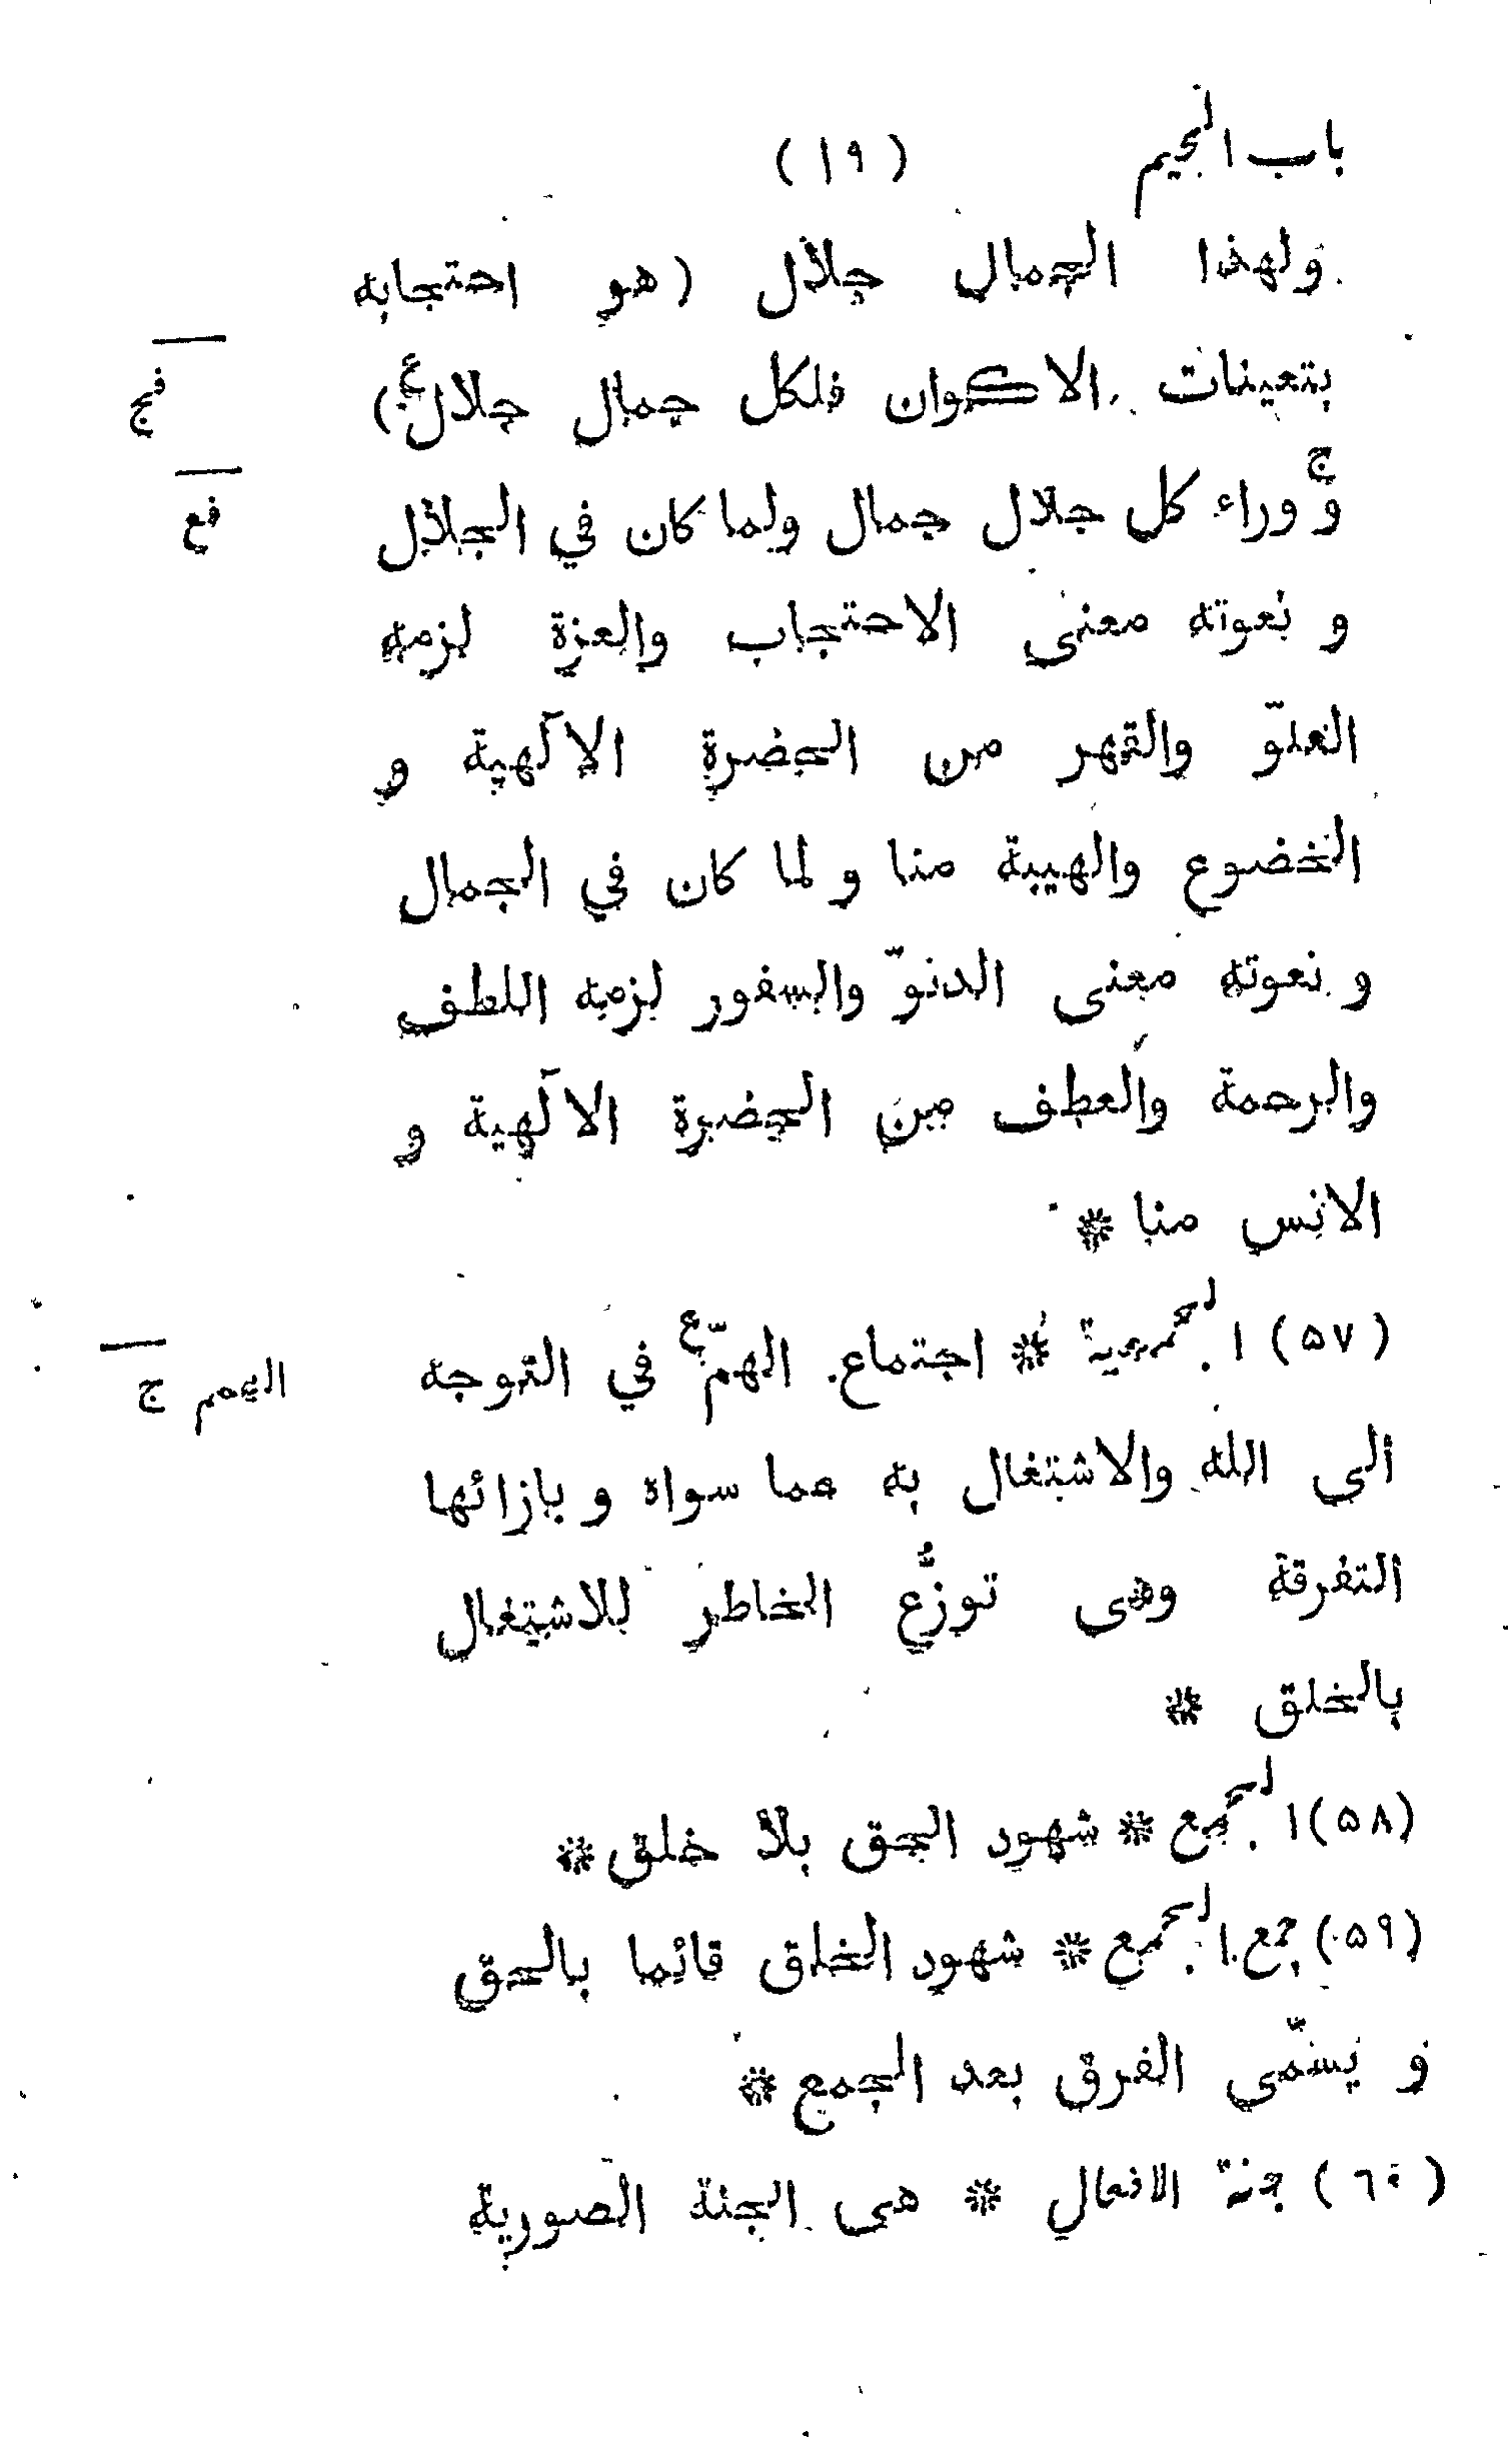 باب الجيم (١٩)
ولهذا الجمال جلال (هو احتجابه
بتعينات الاكوان فلكل جمال جلال ع)
فج
ج
و وراء كل جلال جمال ولما كان في الجلال
فع
و نعوته معنى الاحتجاب والعزة لزمه
العلوّ والقهر من الحضرة الآلهية و
الخضوع والهيبة منا و لما كان في الجمال
و نعوته معنى الدنوّ والسفور لزمه اللطف
والرحمة والعطف من الحضرة الآلهية و
الانس منا *
(٥٧) الجمعية * اجتماع الهمّ ع في التوجه
الهمم ج
الى الله والاشتغال به عما سواه و بازائها
التفرقة وهى توزُّع الخاطر للاشتغال
بالخلق *
(٥٨) الجمع * شهود الحق بلا خلق *
(٥٩) جمع الجمع * شهود الخلق قائما بالحق
و يسمّى الفرق بعد الجمع *
(٦٠) جنة الافعال * هى الجنة الصورية